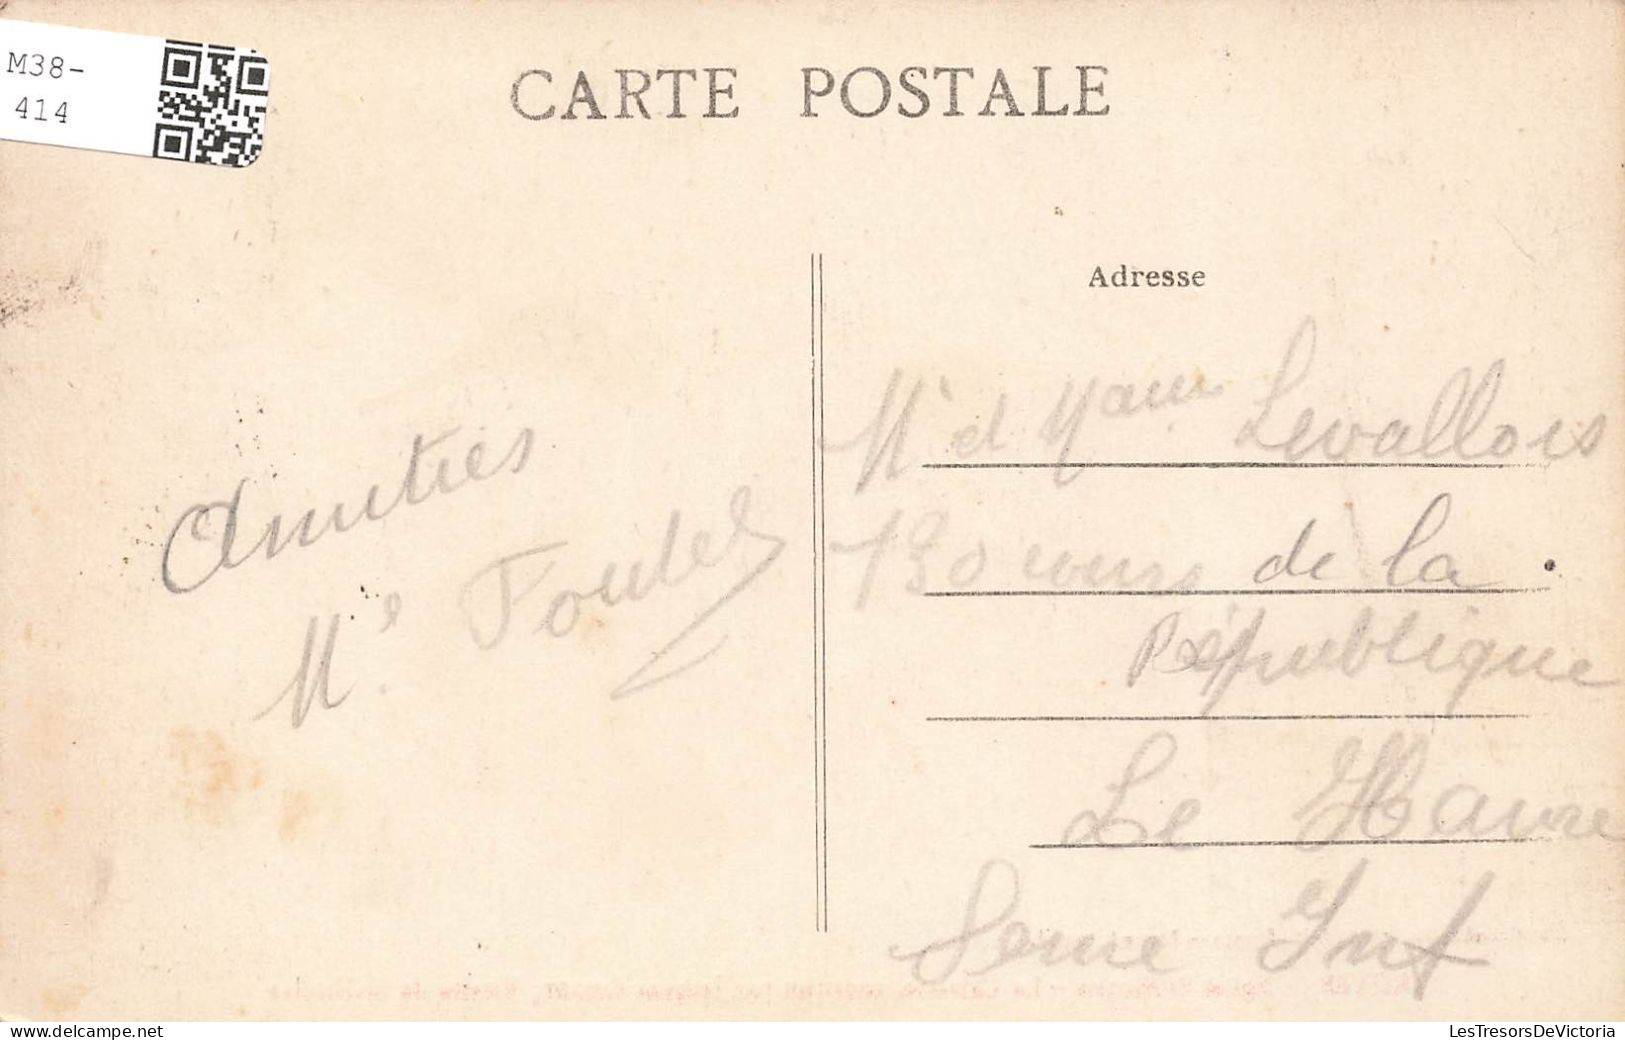 M38-
414
CARTE POSTALE
Adresse
Amitiés
Mr et Mme Levallois
130 cours de la
République
Le Havre
Seine Inf
LesTresorsDeVictoria